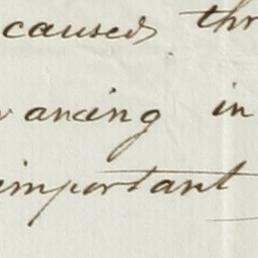 caused thr
ancing in
important